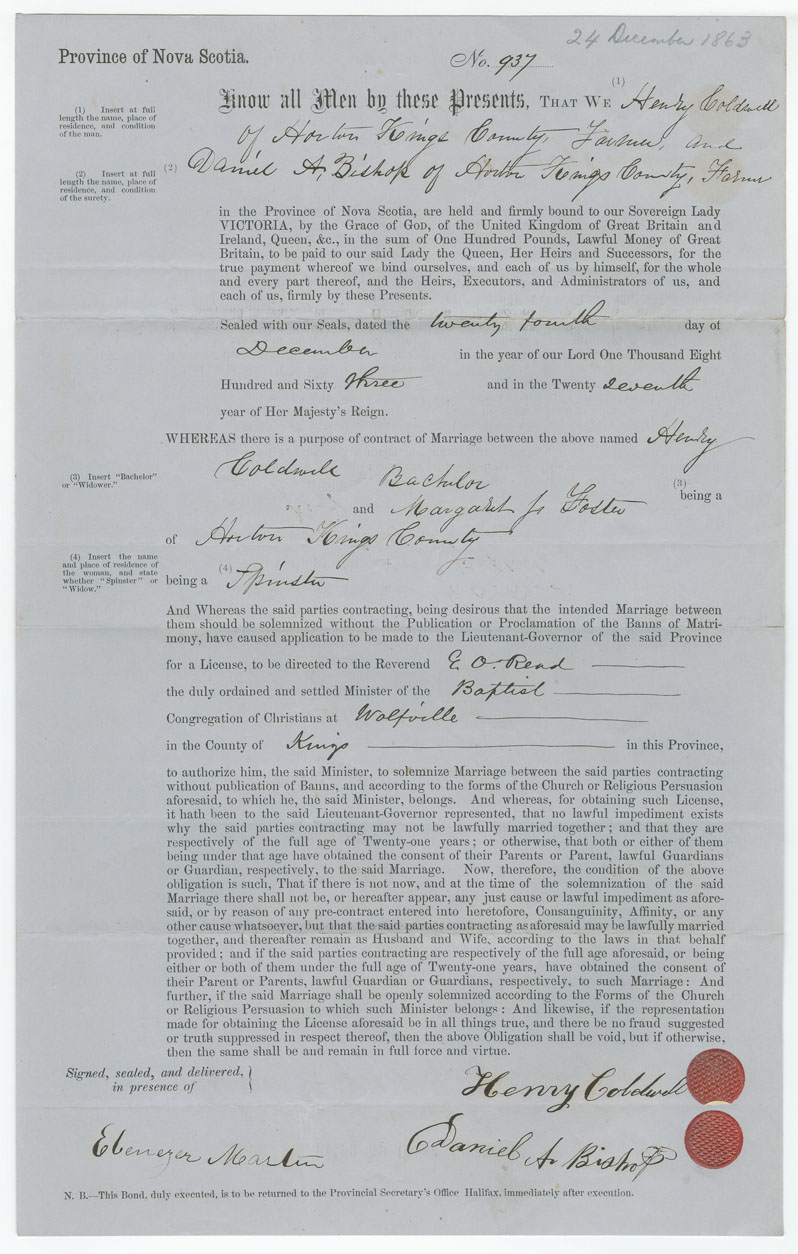 24 December 1863
Province of Nova Scotia.
No. 937
(1)
Know all Men by these Presents, THAT WE Henry Coldwell
(1) Insert at full
length the name, place of
residence, and condition
of the man.
of Horton Kings County, Farmer, and
(2) Daniel A. Bishop of Horton Kings County, Farmer
(2) Insert at full
length the name, place of
residence, and condition
of the surety.
in the Province of Nova Scotia, are held and firmly bound to our Sovereign Lady
VICTORIA, by the Grace of GOD, of the United Kingdom of Great Britain and
Ireland, Queen, &c., in the sum of One Hundred Pounds, Lawful Money of Great
Britain, to be paid to our said Lady the Queen, Her Heirs and Successors, for the
true payment whereof we bind ourselves, and each of us by himself, for the whole
and every part thereof, and the Heirs, Executors, and Administrators of us, and
each of us, firmly by these Presents.
Sealed with our Seals, dated the twenty fourth day of
December in the year of our Lord One Thousand Eight
Hundred and Sixty three and in the Twenty Seventh
year of Her Majesty's Reign.
WHEREAS there is a purpose of contract of Marriage between the above named Henry
Coldwell Bachelor (3) being a
(3) Insert "Bachelor"
or "Widower."
and Margaret J. Foster
of Horton Kings County
(4) Insert the name
and place of residence of
the woman, and state
whether "Spinster" or
"Widow."
being a (4) Spinster
And Whereas the said parties contracting, being desirous that the intended Marriage between
them should be solemnized without the Publication or Proclamation of the Banns of Matri-
mony, have caused application to be made to the Lieutenant-Governor of the said Province
for a License, to be directed to the Reverend E. O. Read
the duly ordained and settled Minister of the Baptist
Congregation of Christians at Wolfville
in the County of Kings in this Province,
to authorize him, the said Minister, to solemnize Marriage between the said parties contracting
without publication of Banns, and according to the forms of the Church or Religious Persuasion
aforesaid, to which he, the said Minister, belongs. And whereas, for obtaining such License,
it hath been to the said Lieutenant-Governor represented, that no lawful impediment exists
why the said parties contracting may not be lawfully married together; and that they are
respectively of the full age of Twenty-one years; or otherwise, that both or either of them
being under that age have obtained the consent of their Parents or Parent, lawful Guardians
or Guardian, respectively, to the said Marriage. Now, therefore, the condition of the above
obligation is such, That if there is not now, and at the time of the solemnization of the said
Marriage there shall not be, or hereafter appear, any just cause or lawful impediment as afore-
said, or by reason of any pre-contract entered into heretofore, Consanguinity, Affinity, or any
other cause whatsoever, but that the said parties contracting as aforesaid may be lawfully married
together, and thereafter remain as Husband and Wife, according to the laws in that behalf
provided; and if the said parties contracting are respectively of the full age aforesaid, or being
either or both of them under the full age of Twenty-one years, have obtained the consent of
their Parent or Parents, lawful Guardian or Guardians, respectively, to such Marriage: And
further, if the said Marriage shall be openly solemnized according to the Forms of the Church
or Religious Persuasion to which such Minister belongs: And likewise, if the representation
made for obtaining the License aforesaid be in all things true, and there be no fraud suggested
or truth suppressed in respect thereof, then the above Obligation shall be void, but if otherwise,
then the same shall be and remain in full force and virtue.
Signed, sealed, and delivered,
in presence of
Henry Coldwell
Ebenezer Martin
Daniel A. Bishop
N. B.—This Bond, duly executed, is to be returned to the Provincial Secretary's Office Halifax, immediately after execution.